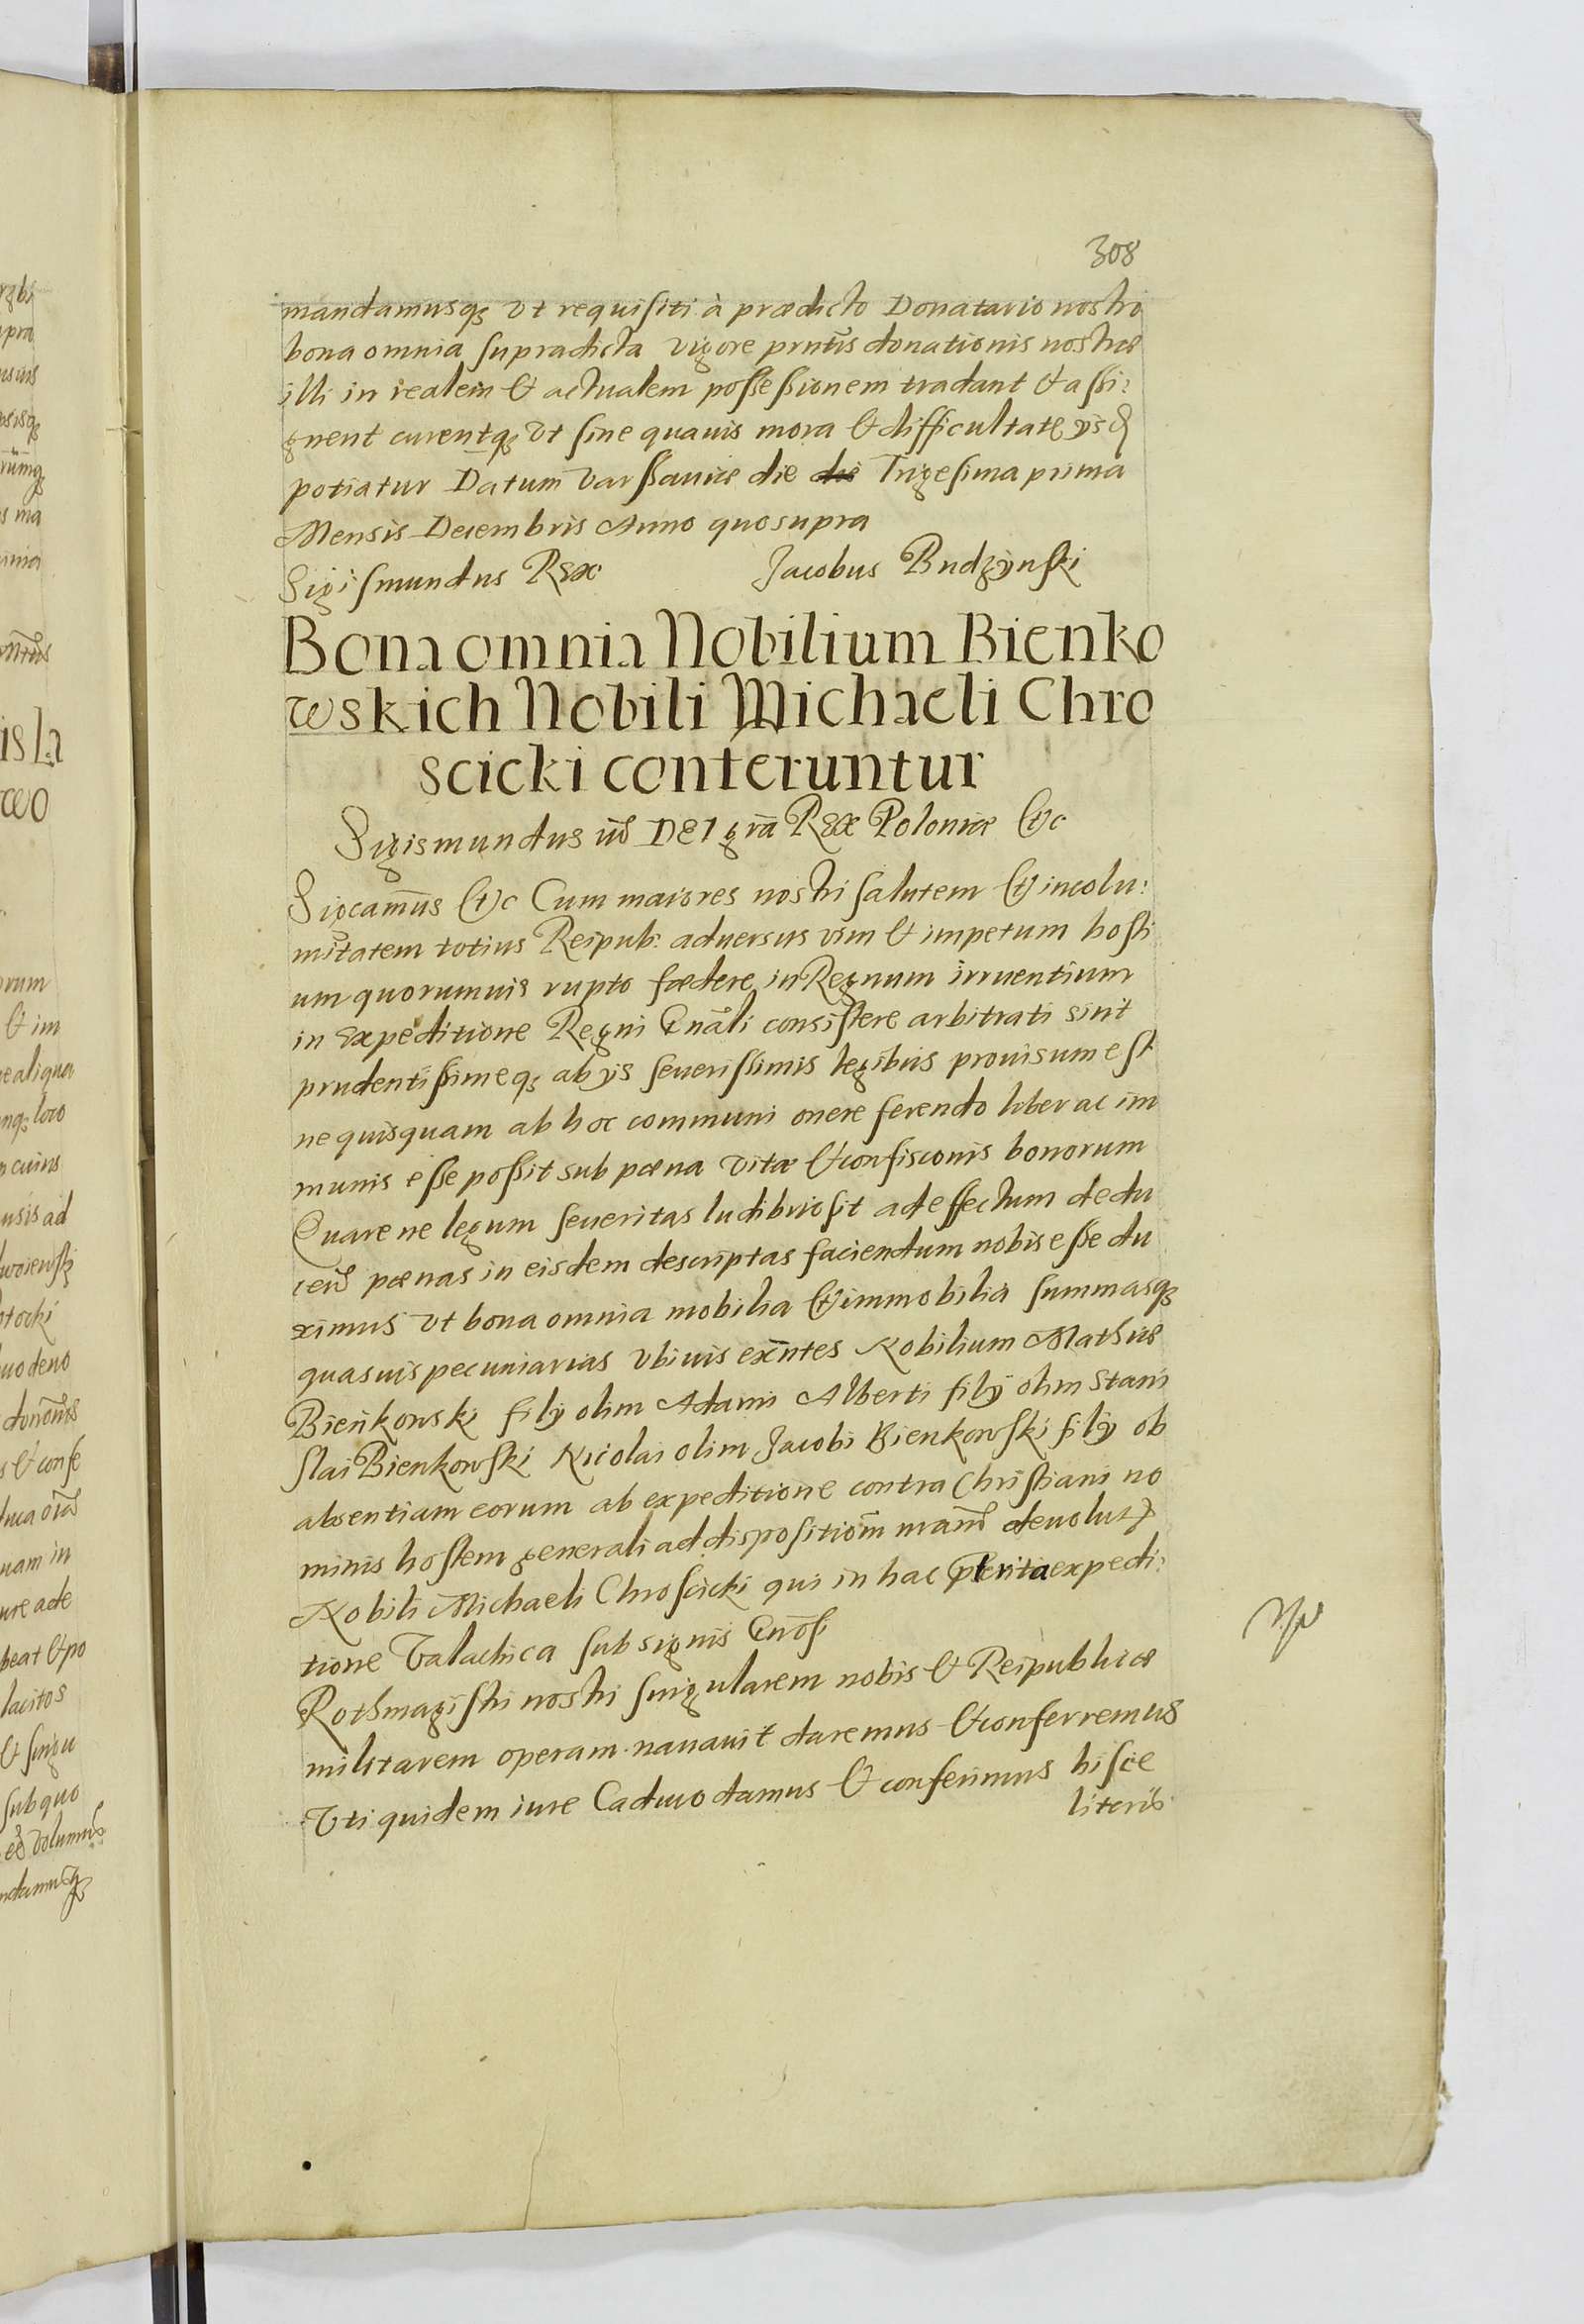 308
mandamusq₃ vt requisiti à prædicto Donatario nostro
bona omnia supradicta vigore prntis donationis nostræ
illi in realem & actualem possessionem tradant & assi:
gnent curentq₃ vt sine quauis mora & difficultate ys
potiatur Datum Varssauiæ die Trigesima prima
Mensis Decembris Anno quo supra
Sigismundus Rex Jacobus Budzynski
Bona omnia Nobilium Bienko
wskich Nobili Michaeli Chro
scicki conferuntur
Sigismundus DEI gra Rex Poloniæ &c
&c Cum maiores nostri salutem & incolu:
mitatem totius Reipub: aduersus vim & impetum hosti
um quorumuis rupto fœdere in Regnum irruentium
in expeditione Regni Gnali consistere arbitrati sint
prudentissimeq₃ ab ys seuerissimis legibus prouisum est
ne quisquam ab hoc communi onere ferendo liber ac im
munis esse possit sub pœna vitæ & confisconis bonorum
Quare ne legum seueritas ludibrio sit ad effectum dedu
cend pœnas in eisdem descriptas faciendum nobis esse du
ximus vt bona omnia mobilia & immobilia summasq₃
quasuis pecuniarias vbiuis exntes Nobilium Mathiæ
Bieńkowski fily olim Adami Alberti fily olim Stani
slai Bienkowski Nicolai olim Jacobi Bienkowski fily ob
absentiam eorum ab expeditione contra Christiani no
minis hostem generali ad dispositiom nram deuolut
Nobili Michaeli Chroscicki qui in hac expedi:
tione Valachica sub signis Gnosi
Rothmagistri nostri singularem nobis & Reipublicæ
militarem operam nauauit daremus & conferremus
Vti quidem iure Caduco damus & conferimus hisce
literis
is La